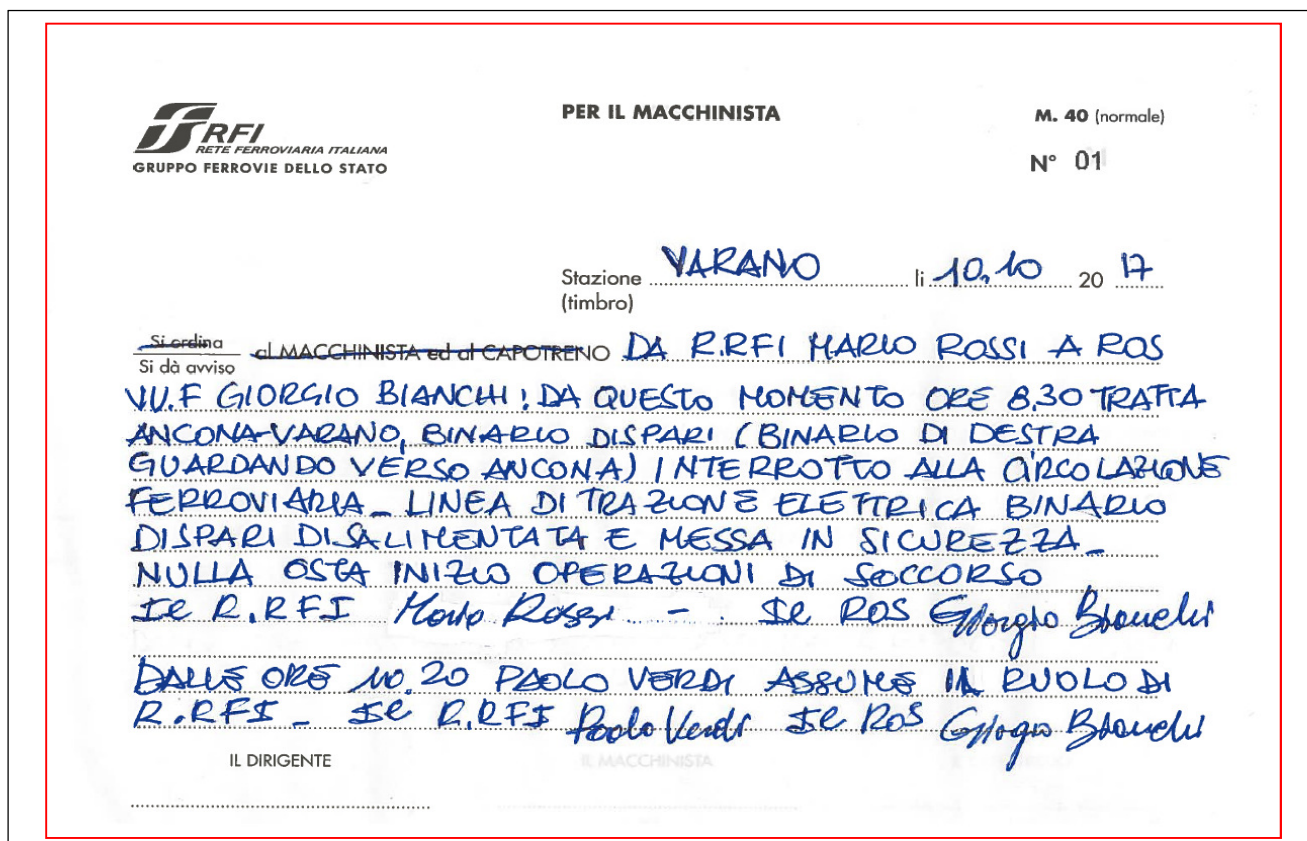 RFI
RETE FERROVIARIA ITALIANA
GRUPPO FERROVIE DELLO STATO
PER IL MACCHINISTA
M. 40 (normale)
N° 01
Stazione VARANO li 10.10 20 17
(timbro)
Si ordina
Si dà avviso
al MACCHINISTA ed al CAPOTRENO DA R.RFI MARIO ROSSI A ROS
VV.F GIORGIO BIANCHI: DA QUESTO MOMENTO ORE 8.30 TRATTA
ANCONA-VARANO, BINARIO DISPARI (BINARIO DI DESTRA
GUARDANDO VERSO ANCONA) INTERROTTO ALLA CIRCOLAZIONE
FERROVIARIA_ LINEA DI TRAZIONE ELETTRICA BINARIO
DISPARI DISALIMENTATA E MESSA IN SICUREZZA_
NULLA OSTA INIZIO OPERAZIONI DI SOCCORSO
Il R.RFI Mario Rossi - Il ROS Giorgio Bianchi
DALLE ORE 10.20 PAOLO VERDI ASSUME IL RUOLO DI
R.RFI _ Il R.RFI Paolo Verdi Il ROS Giorgio Bianchi
IL DIRIGENTE
IL MACCHINISTA